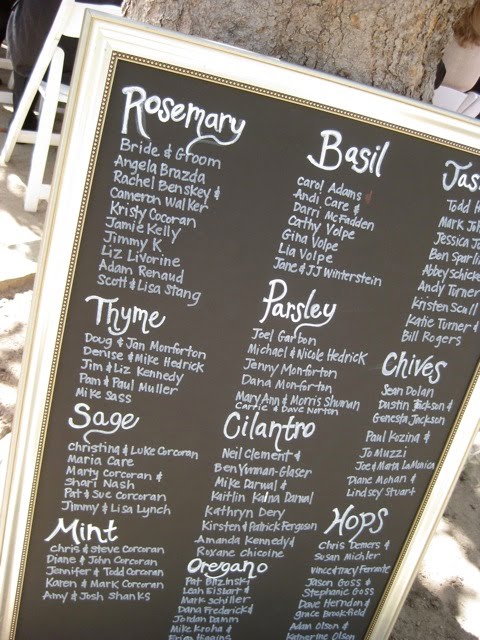 Rosemary
Bride & Groom
Angela Brazda
Rachel Benskey &
Cameron Walker
Kristy Cocoran
Jamie Kelly
Jimmy K
Liz Livorine
Adam Renaud
Scott & Lisa Stang
Thyme
Doug & Jan Monforton
Denise & Mike Hedrick
Jim & Liz Kennedy
Pam & Paul Muller
Mike Sass
Sage
Christina & Luke Corcoran
Maria Care
Marty Corcoran &
Shari Nash
Pat & Sue Corcoran
Jimmy & Lisa Lynch
Mint
Chris & Steve Corcoran
Diane & John Corcoran
Jennifer & Todd Corcoran
Karen & Mark Corcoran
Amy & Josh Shanks
Basil
Carol Adams &
Andi Care &
Darri McFadden
Cathy Volpe
Gina Volpe
Lia Volpe
Jane & JJ Winterstein
Parsley
Joel Garbon
Michael & Nicole Hedrick
Jenny Monforton
Dana Monforton
Mary Ann & Morris Shuman
Carrie & Dave Norton
Cilantro
Neil Clement &
Ben Yunnan-Glaser
Mike Darwal &
Kaitlin Kalna Darwal
Kathryn Dery
Kirsten & Patrick Ferguson
Amanda Kennedy &
Roxane Chicoine
Oregano
Pat Blizinski
Leah Eisbart &
Mark Schiller
Dana Frederick &
Jordan Damm
Mike Kroha &
Erica Higgins
Jas
Todd H
Mark Jo
Jessica J
Ben Sparli
Abbey Schicke
Andy Turner
Kristen Scall
Katie Turner &
Bill Rogers
Chives
Sean Dolan
Dustin Jackson &
Genesta Jackson
Paul Kozina &
Jo Muzzi
Joe & Maria LaMonica
Diane Mohan &
Lindsey Stuart
Hops
Chris Demers &
Susan Michler
Vince & Tracy Ferrante
Jason Goss &
Stephanie Goss
Dave Herndon &
Grace Brookfield
Adam Olson &
Katherine Olson